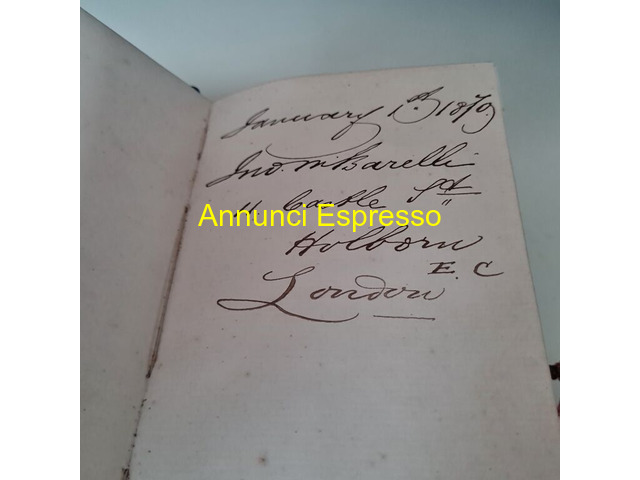 January 1st 1879.
Jno. M. Barelli
11 Castle St
Annunci Espresso
Holborn
E. C
London